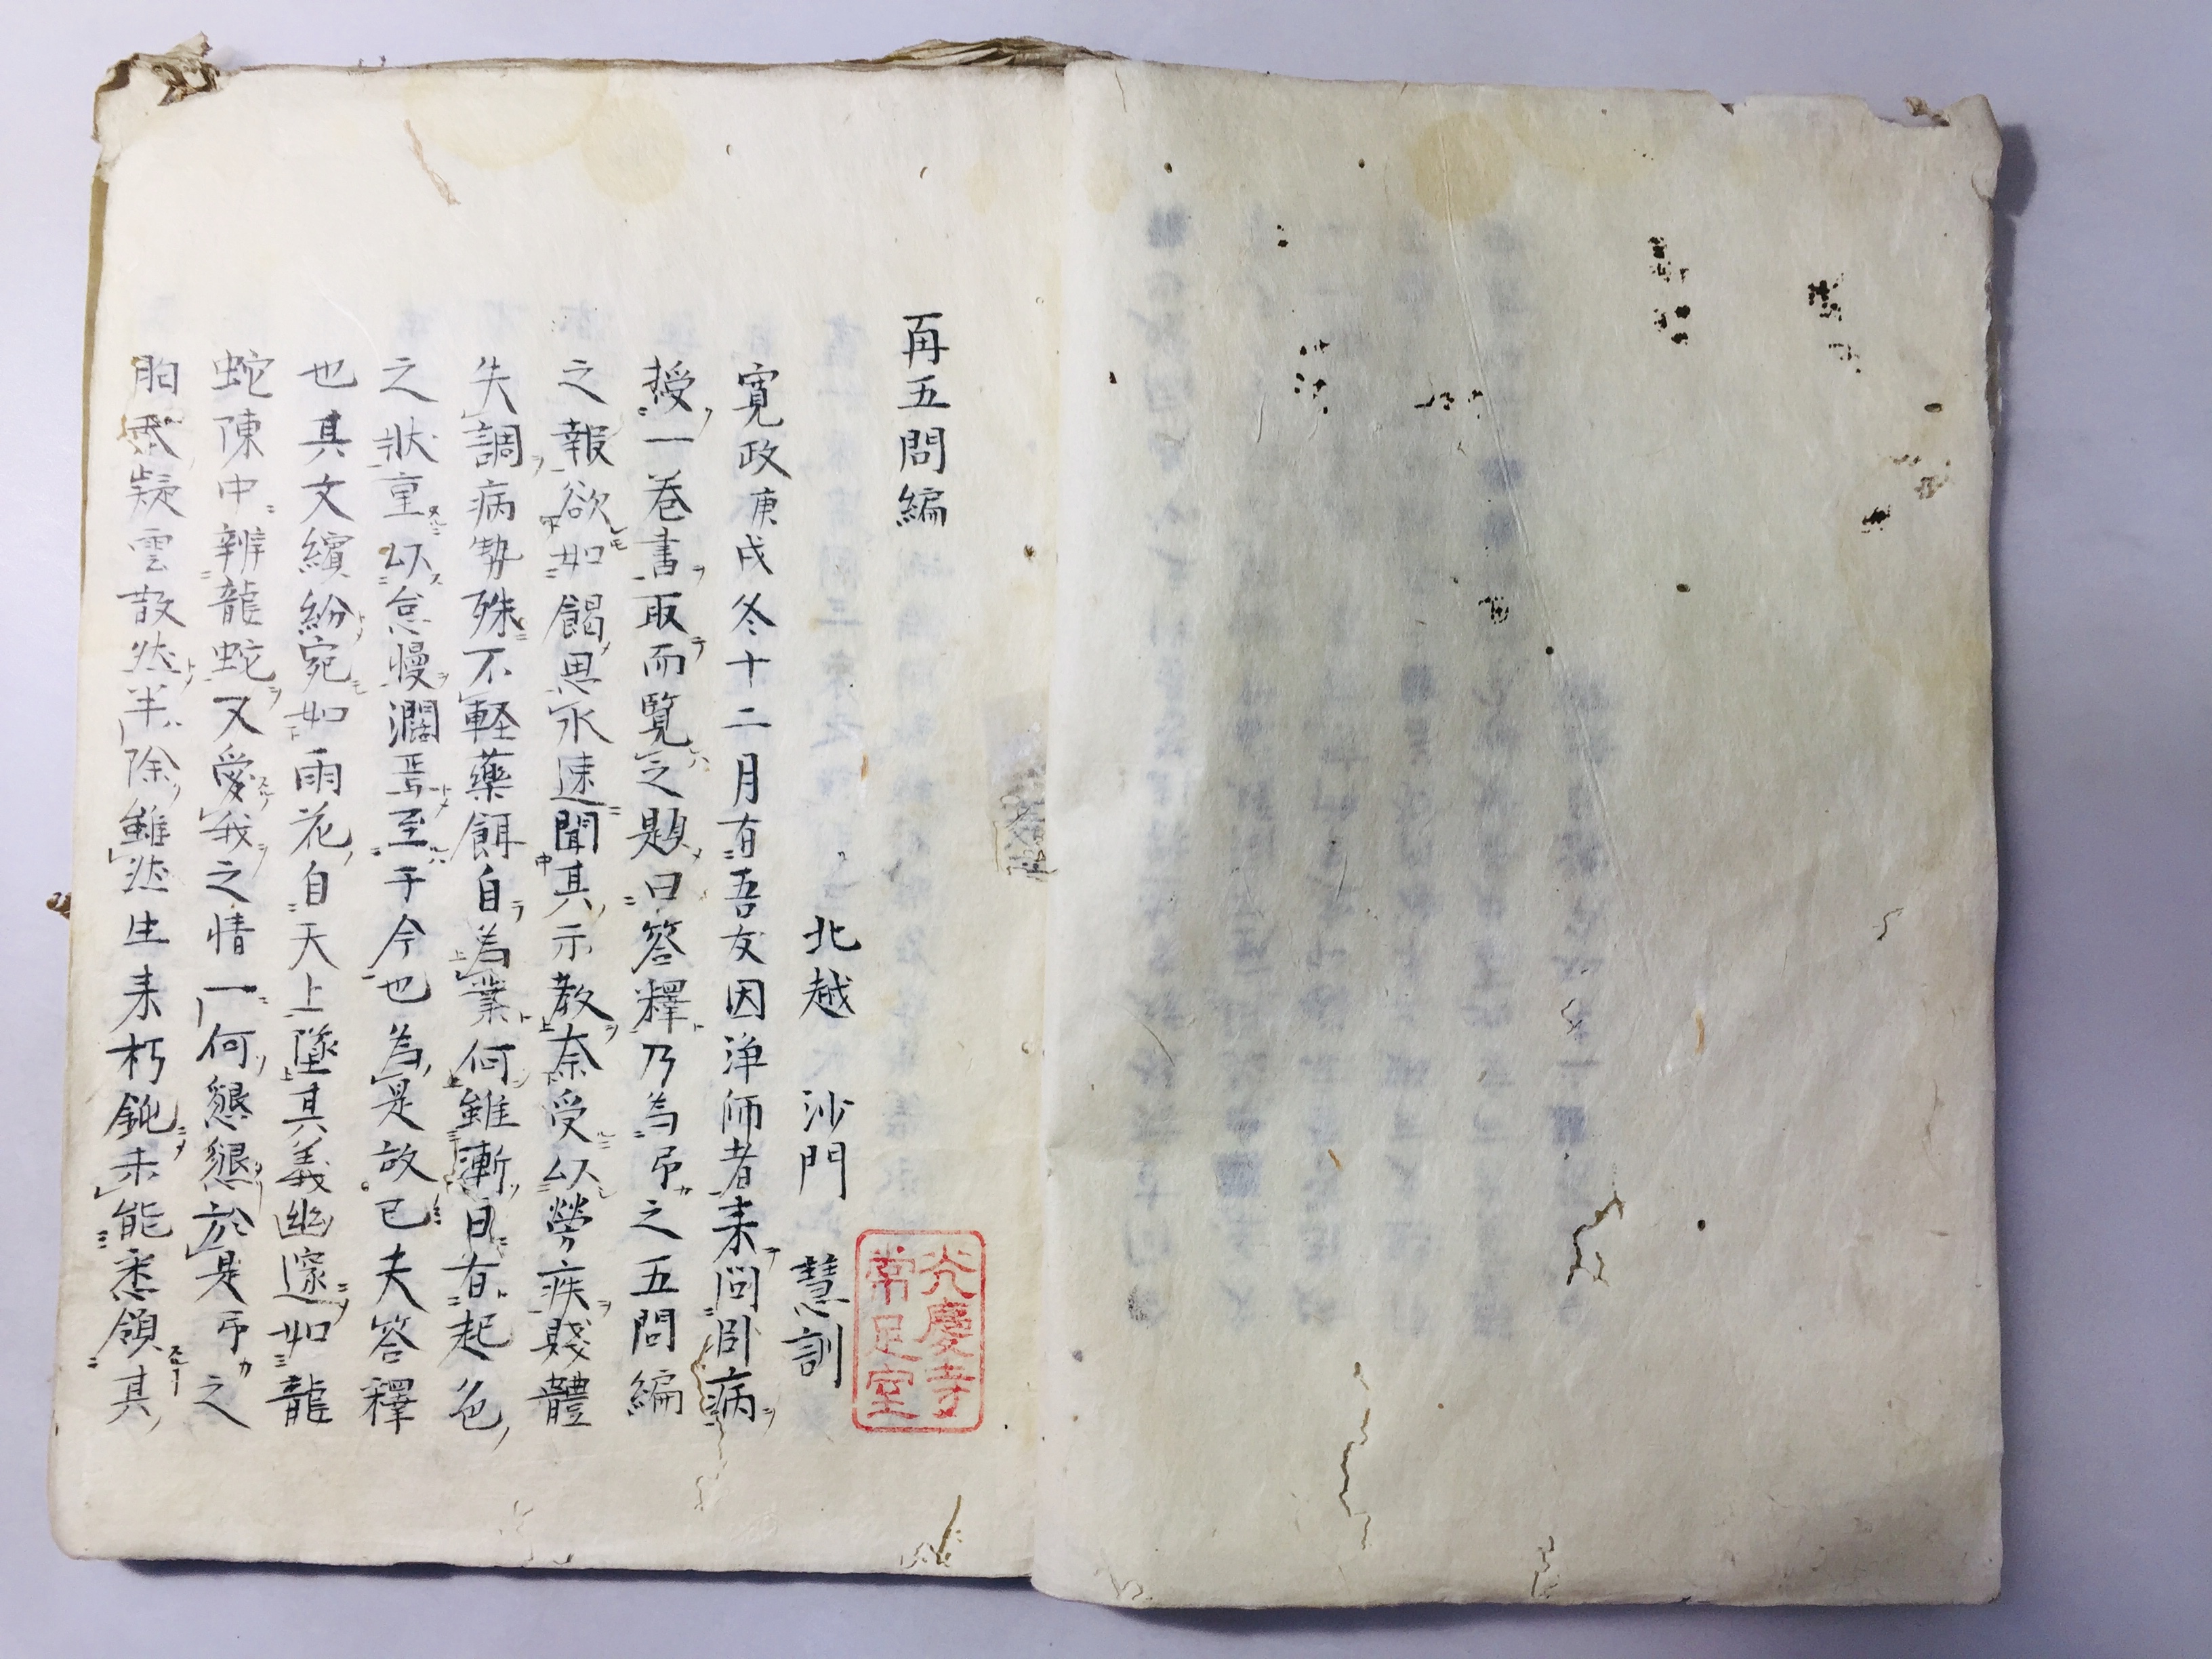 再五問編
北越 沙門 慧訓
光慶寺
常足室
寛政庚戌冬十二月有吾友因浄師者来問卧病
授一巻書取而覧之題曰答釋乃為吊之五問編
之報欲如餲思永速聞其示教奈受以勞疾賤體
失調病勢殊不軽藥餌自為業何雖漸日有起色
之状重以怠慢濶焉至于今也為是故已夫答釋
也其文繽紛宛如雨花自天上墜其義幽邃如龍
蛇陳中辨龍蛇又愛我之情一何懇懇於是吊之
胸疑雲散然半除雖然生来朽鈍未能悉領其